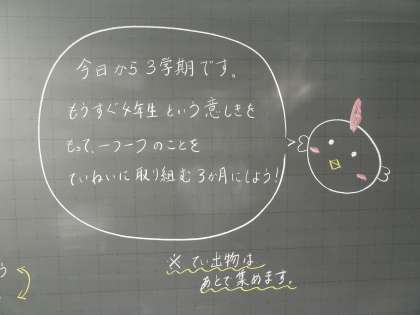 今日から3学期です。
もうすぐ4年生という意しきを
もって、一つ一つのことを
ていねいに取り組む3か月にしよう!
※ てい出物は
あとで集めます。
う